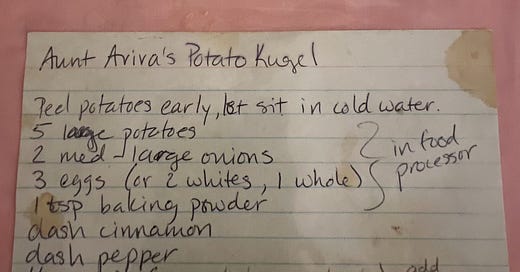 Aunt Aviva's Potato Kugel
Peel potatoes early, let sit in cold water.
5 large potatoes
2 med-large onions
3 eggs (or 2 whites, 1 whole)
in food
processor
1 tsp baking powder
dash cinnamon
dash pepper
add